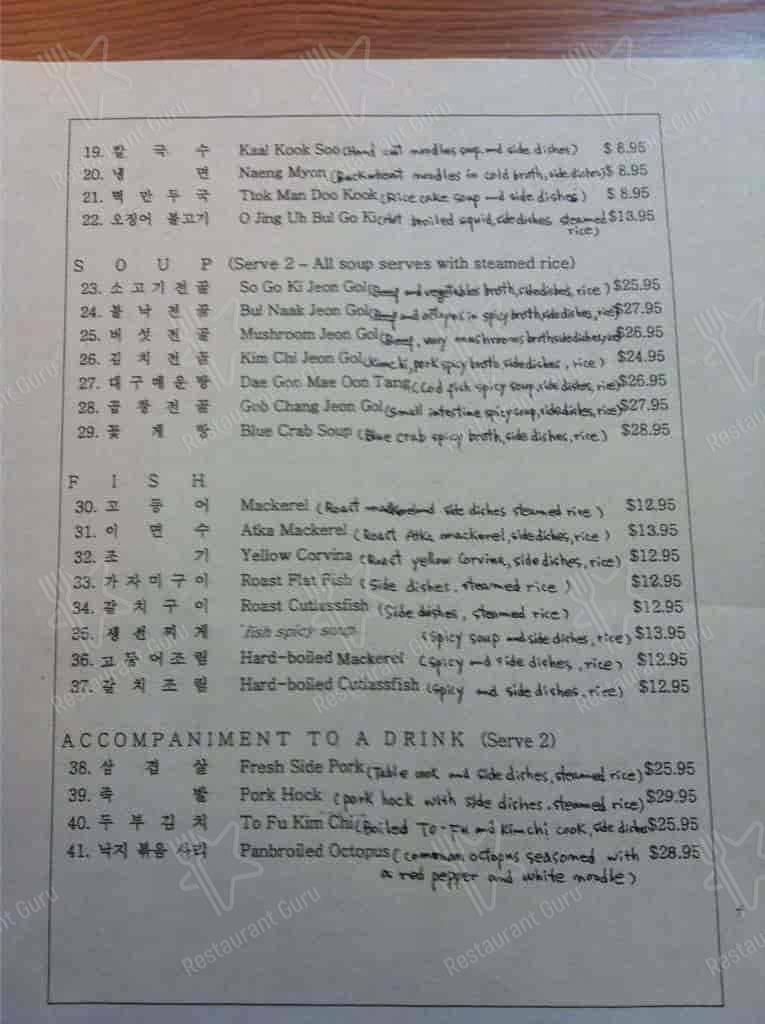 19. 칼 국 수 Kaal Kook Soo (Hand cut noodles soup and side dishes) $ 8.95
20. 냉 면 Naeng Myon (Buckwheat noodles in cold broth, side dishes) $ 8.95
21. 떡 만 두 국 Ttok Man Doo Kook (Rice cake soup and side dishes) $ 8.95
22. 오징어 불고기 O Jing Uh Bul Go Ki (Hot broiled squid, side dishes steamed $13.95
rice)
S O U P (Serve 2 - All soup serves with steamed rice)
23. 소 고 기 전 골 So Go Ki Jeon Gol (Beef and vegetables broth, side dishes, rice) $25.95
24. 불 낙 전 골 Bul Naak Jeon Gol (Beef and octopus in spicy broth, side dishes, rice) $27.95
25. 버 섯 전 골 Mushroom Jeon Gol (Beef, very mushrooms broth side dishes, rice) $26.95
26. 김 치 전 골 Kim Chi Jeon Gol (Kimchi, pork spicy broth side dishes, rice) $24.95
27. 대 구 매 운 탕 Dae Goo Mae Oon Tang (Cod fish spicy soup, side dishes, rice) $26.95
28. 곱 창 전 골 Gob Chang Jeon Gol (Small intestine spicy soup, side dishes, rice) $27.95
29. 꽃 게 탕 Blue Crab Soup (Blue crab spicy broth, side dishes, rice) $28.95
F I S H
30. 고 등 어 Mackerel (Roast mackerel and side dishes steamed rice) $12.95
31. 이 면 수 Atka Mackerel (Roast Atka mackerel, side dishes, rice) $13.95
32. 조 기 Yellow Corvina (Roast yellow Corvina, side dishes, rice) $12.95
33. 가 자 미 구 이 Roast Flat Fish (Side dishes, steamed rice) $12.95
34. 갈 치 구 이 Roast Cutlassfish (Side dishes, steamed rice) $12.95
35. 생 선 찌 게 fish spicy soup (Spicy soup and side dishes, rice) $13.95
36. 고 등 어 조 림 Hard-boiled Mackerel (Spicy and side dishes, rice) $12.95
37. 갈 치 조 림 Hard-boiled Cutlassfish (Spicy and side dishes, rice) $12.95
ACCOMPANIMENT TO A DRINK (Serve 2)
38. 삼 겹 살 Fresh Side Pork (Table cook and side dishes, steamed rice) $25.95
39. 족 발 Pork Hock (pork hock with side dishes. steamed rice) $29.95
40. 두 부 김 치 To Fu Kim Chi (Boiled TO-FU and Kimchi cook, side dishes $25.95
41. 낙지 볶음 사리 Panbroiled Octopus (common octopus seasomed with $28.95
a red pepper and white noodle)
Restaurant Guru